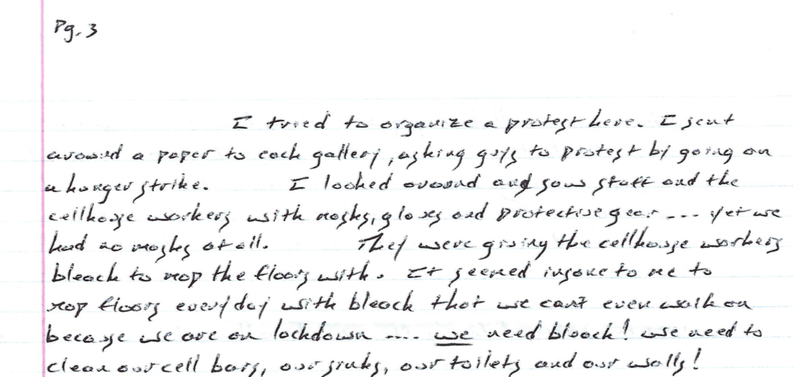 Pg. 3
I tried to organize a protest here. I sent
around a paper to each gallery, asking guys to protest by going on
a hunger strike. I looked around and saw staff and the
cellhouse workers with masks, gloves and protective gear .... yet we
had no masks at all. They were giving the cellhouse workers
bleach to mop the floors with. It seemed insane to me to
mop floors everyday with bleach that we can't even walk on
because we are on lockdown .... we need bleach! We need to
clean our cell bars, our sinks, our toilets and our walls!